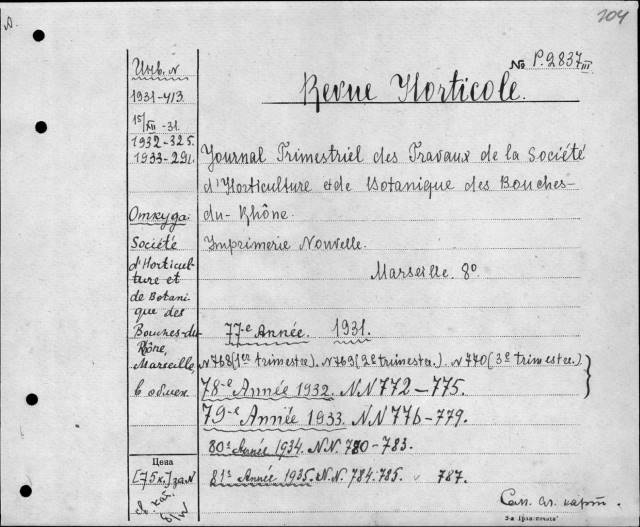 204
№ P.2837 III
Revue Horticole.
Инв. N
1931-413
15/XII -31.
1932-325.
1933-291.
Journal Trimestriel des Travaux de la Société
d'Horticulture et de Botanique des Bouches-
du-Rhône.
Imprimerie Nouvelle.
Marseille. 8º
Откуда:
Société
d'Horticul-
ture et
de Botani-
que des
Bouches-du-
Rhône,
Marseille,
в обмен.
77-e Année. 1931.
N768 (1er trimestre). N769 (2e trimestre.). N770 (3e trimestre.)
78-e Année 1932. NN 772-775.
79-e Année 1933. NN 776-779.
80e Année 1934. N.N. 780-783.
81e Année 1935. N.N. 784-785. 787.
Цена
[75к.] за N